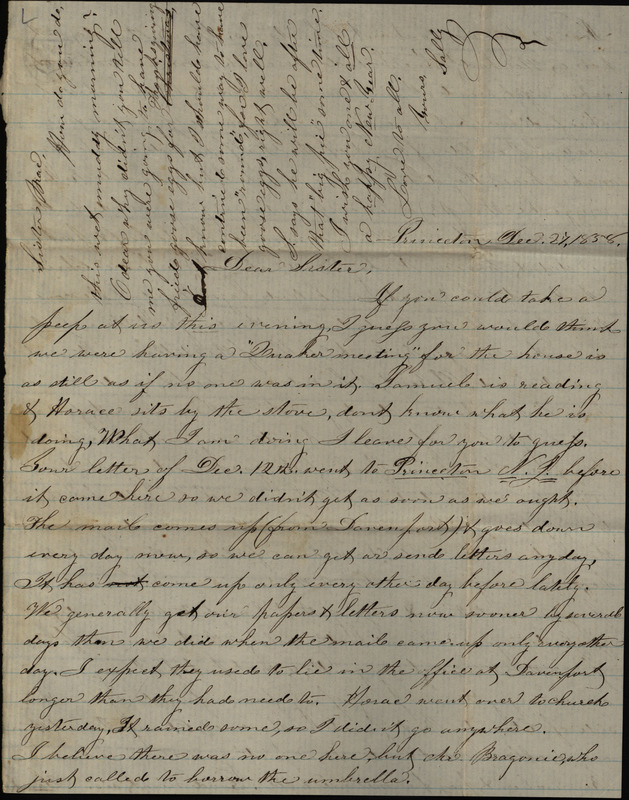 Princeton, Dec. 27, 1858.
Dear Sister,
If you could take a
peep at us this evening, I guess you would think
we were having a "Quaker meeting" for the house is
as still as if no one was in it. Samuel is reading
& Horace sits by the stove, dont know what he is
doing, What I am doing I leave for you to guess.
Your letter of Dec. 12th. went to Princeton N.J. before
it came here so we didn't get as soon as we ought.
The mail comes up (from Davenport) & goes down
every day now, so we can get or send letters any day,
It has not come up only every other day before lately.
We generally get our papers & letters now sooner by several
days than we did when the mail came up only every other
day. I expect they used to lie in the office at Davenport
longer than they had need to. Horace went over to church
yesterday, It rained some, so I didn't go anywhere.
I believe there was no one here, but Mr Bragonier, who
just called to borrow the umbrella.
Sister Mae,
How do you do,
this wet monday morning?
O dear why didn't you tell
me you were going to have
fried goose eggs for
know but I should have
contrived some way to have
been "round", for I love
goose eggs, right well.
S. says he will be after
that "big pie" some time.
I wish you one & all
a happy New Year.
Love to all.
Yours, Sally